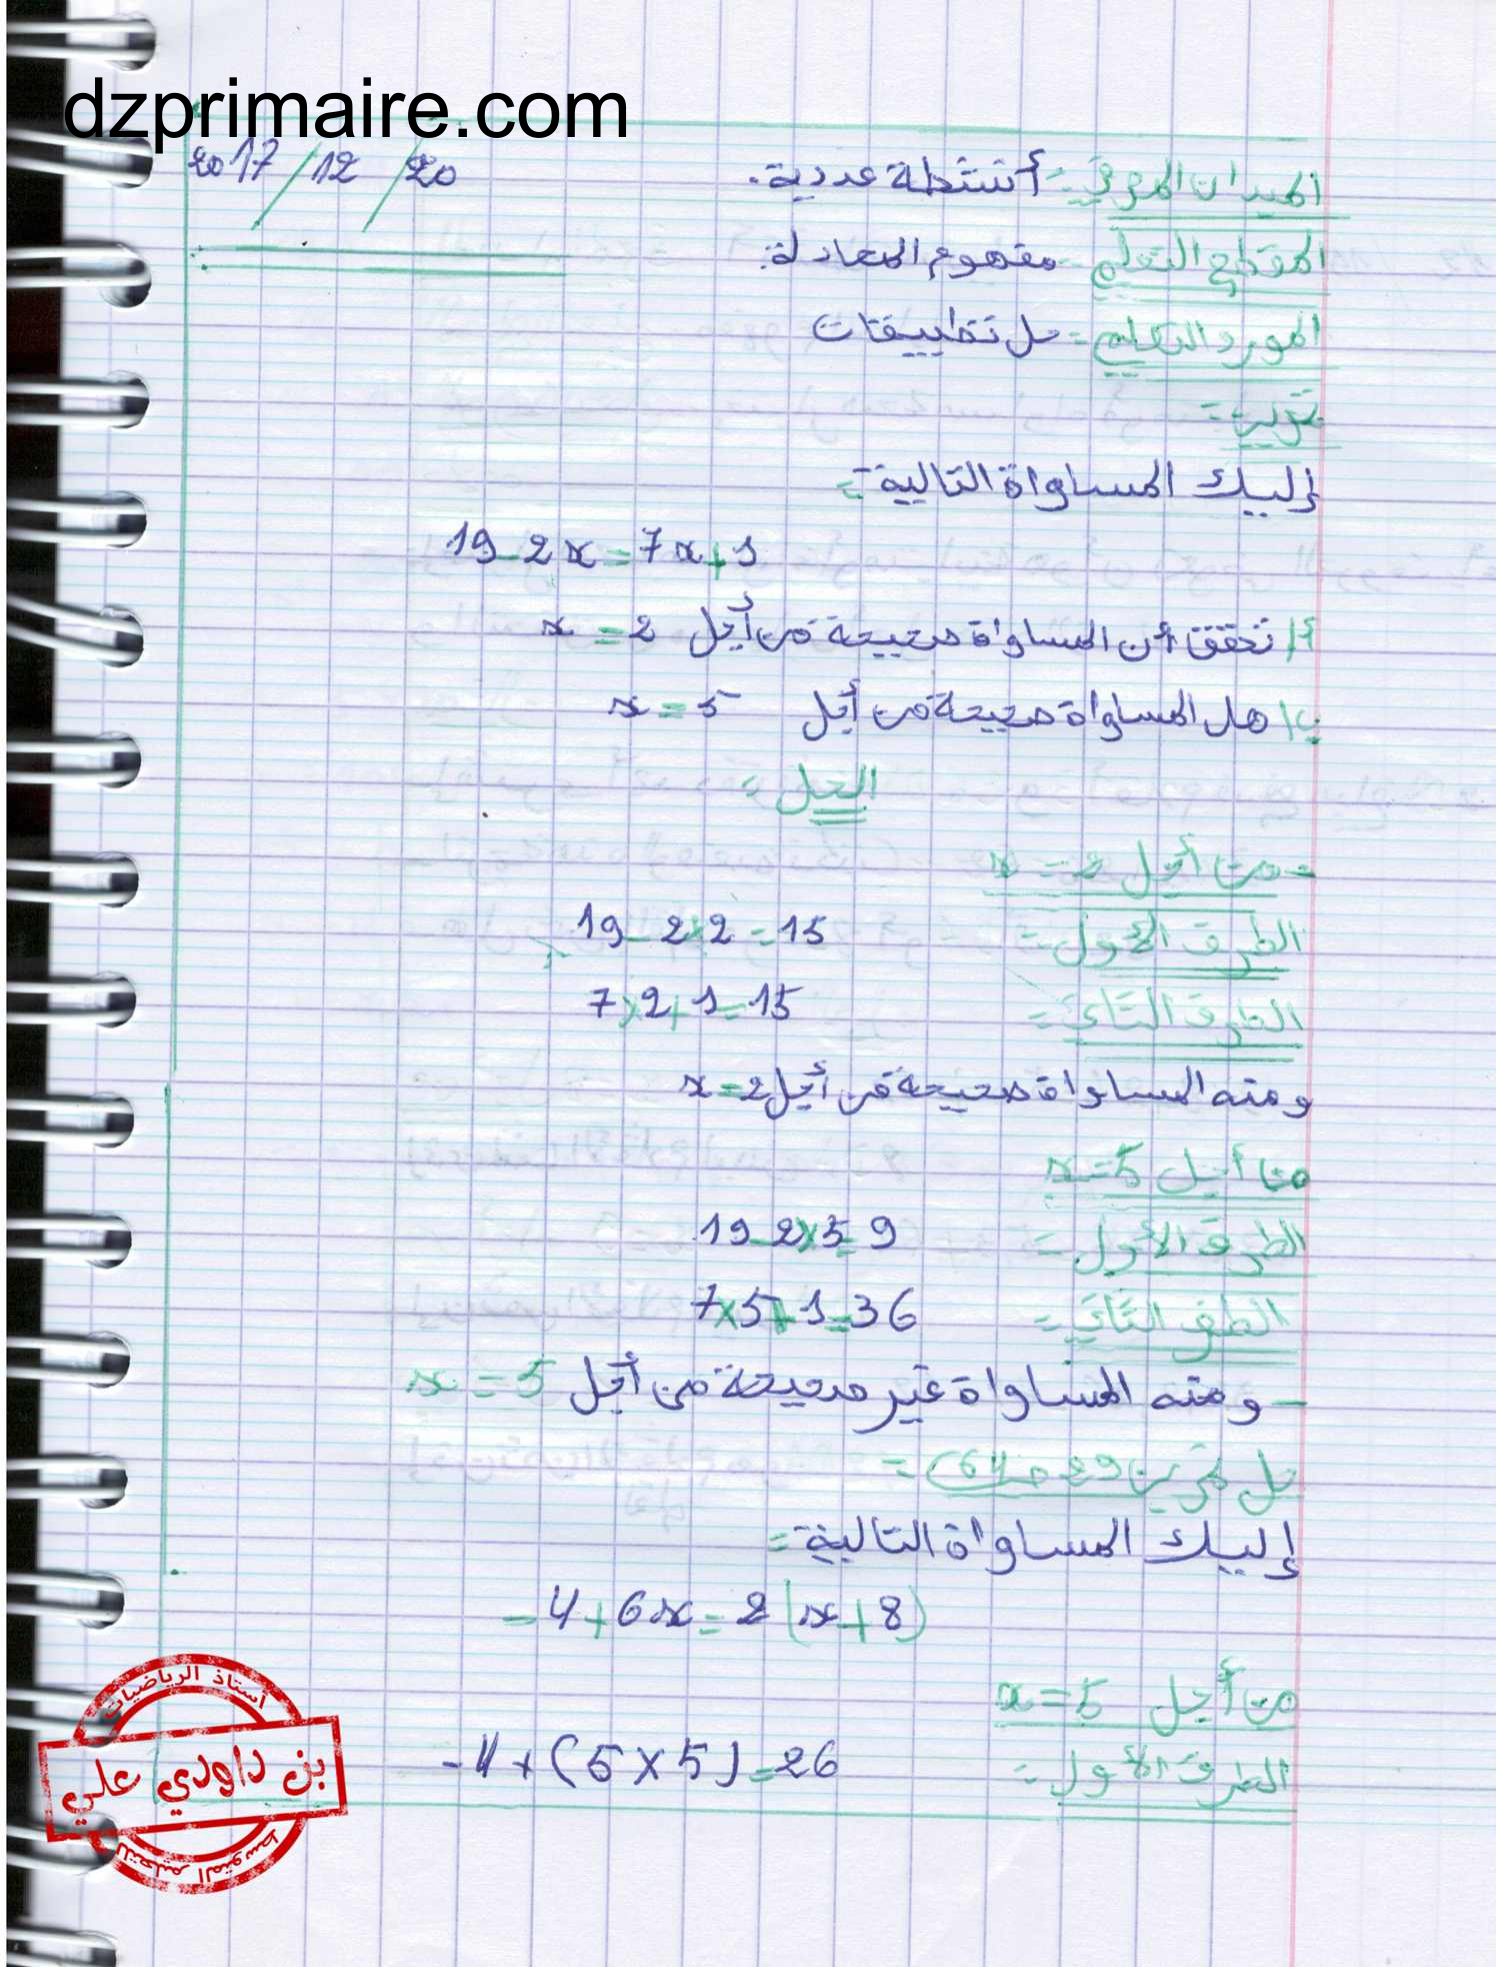 dzprimaire.com
2017/12/20
الميدان المعرفي = أنشطة عددية.
المقطع التعلمي = مفهوم المعادلة.
المورد التعلمي = حل تطبيقات
تمرين =
إليك المساواة التالية =
19-2x=7x+1
أ/ تحقق أن المساواة صحيحة من أجل x=2
ب/ هل المساواة صحيحة من أجل x=5
الحل =
- من أجل x=2
الطرف الأول = 19-2×2=15
الطرف الثاني = 7×2+1=15
ومنه المساواة صحيحة من أجل x=2
من أجل x=5
الطرف الأول = 19-2×5=9
الطف الثاني = 7×5+1=36
- ومنه المساواة غير صحيحة من أجل x=5
حل تمرين 29 ص 64) =
إليك المساواة التالية =
-4+6x=2(x+8)
من أجل x=5
الطرف الأول = -4+(5×5)=26
أستاذ الرياضيات
بن داودي علي
للتعليم المتوسط